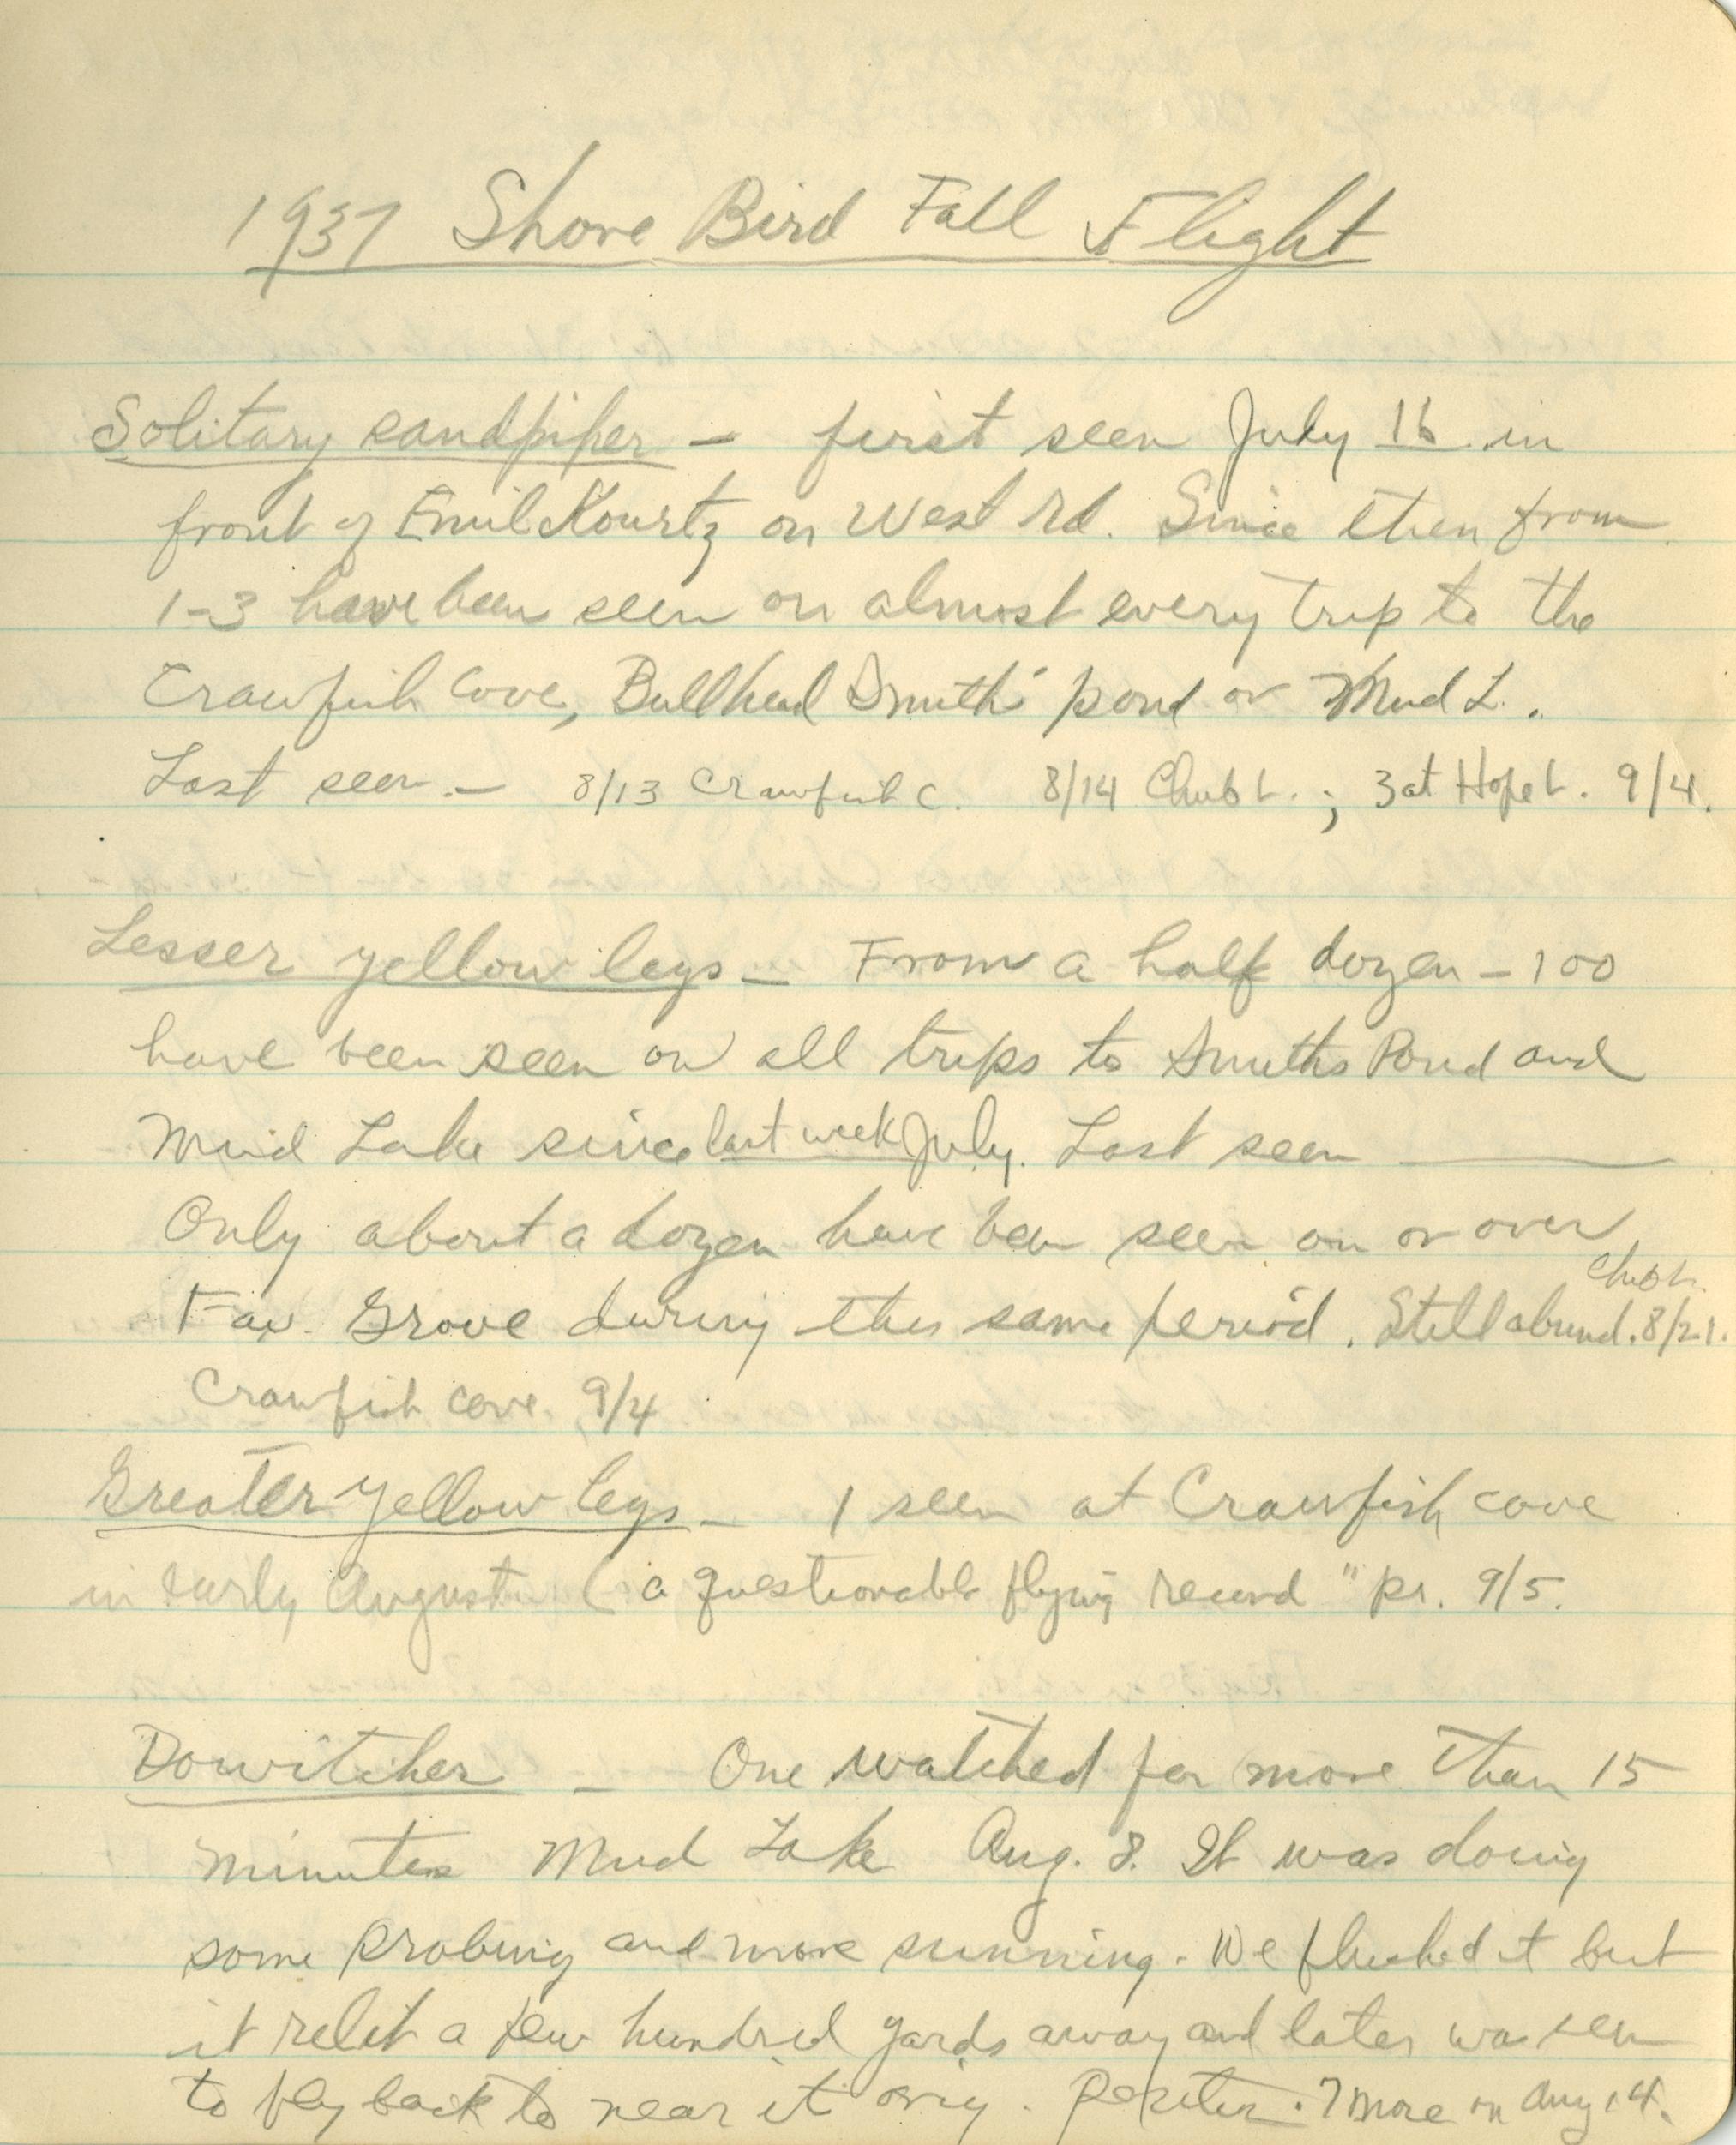 1937 Shore Bird Fall Flight
Solitary sandpiper – first seen July 16 in
front of Emil Kourtz on West Rd. Since then from
1-3 have been seen on almost every trip to the
Crawfish Cove, Bullhead Smiths' pond or Mud L.
Last seen – 8/13 Crawfish C. 8/14 Chub L. ; 3 at Hope L. 9/4.
Lesser yellow legs – From a half dozen – 100
have been seen on all trips to Smiths Pond and
Mud Lake since last week July. Last seen ____
Only about a dozen have been seen on or over
Chub L.
Fav. Grove during this same period. Still abund. 8/21.
Crawfish cove. 9/4
Greater yellow legs – 1 seen at Crawfish cove
in early August ( a questionable flying record " pr. 9/5.
Dowitcher – One watched for more than 15
minutes Mud Lake Aug. 8. It was doing
some probing and more sunning. We flushed it but
it relit a few hundred yards away and later was seen
to fly back to near it orig. position. 7 more on Aug 14.